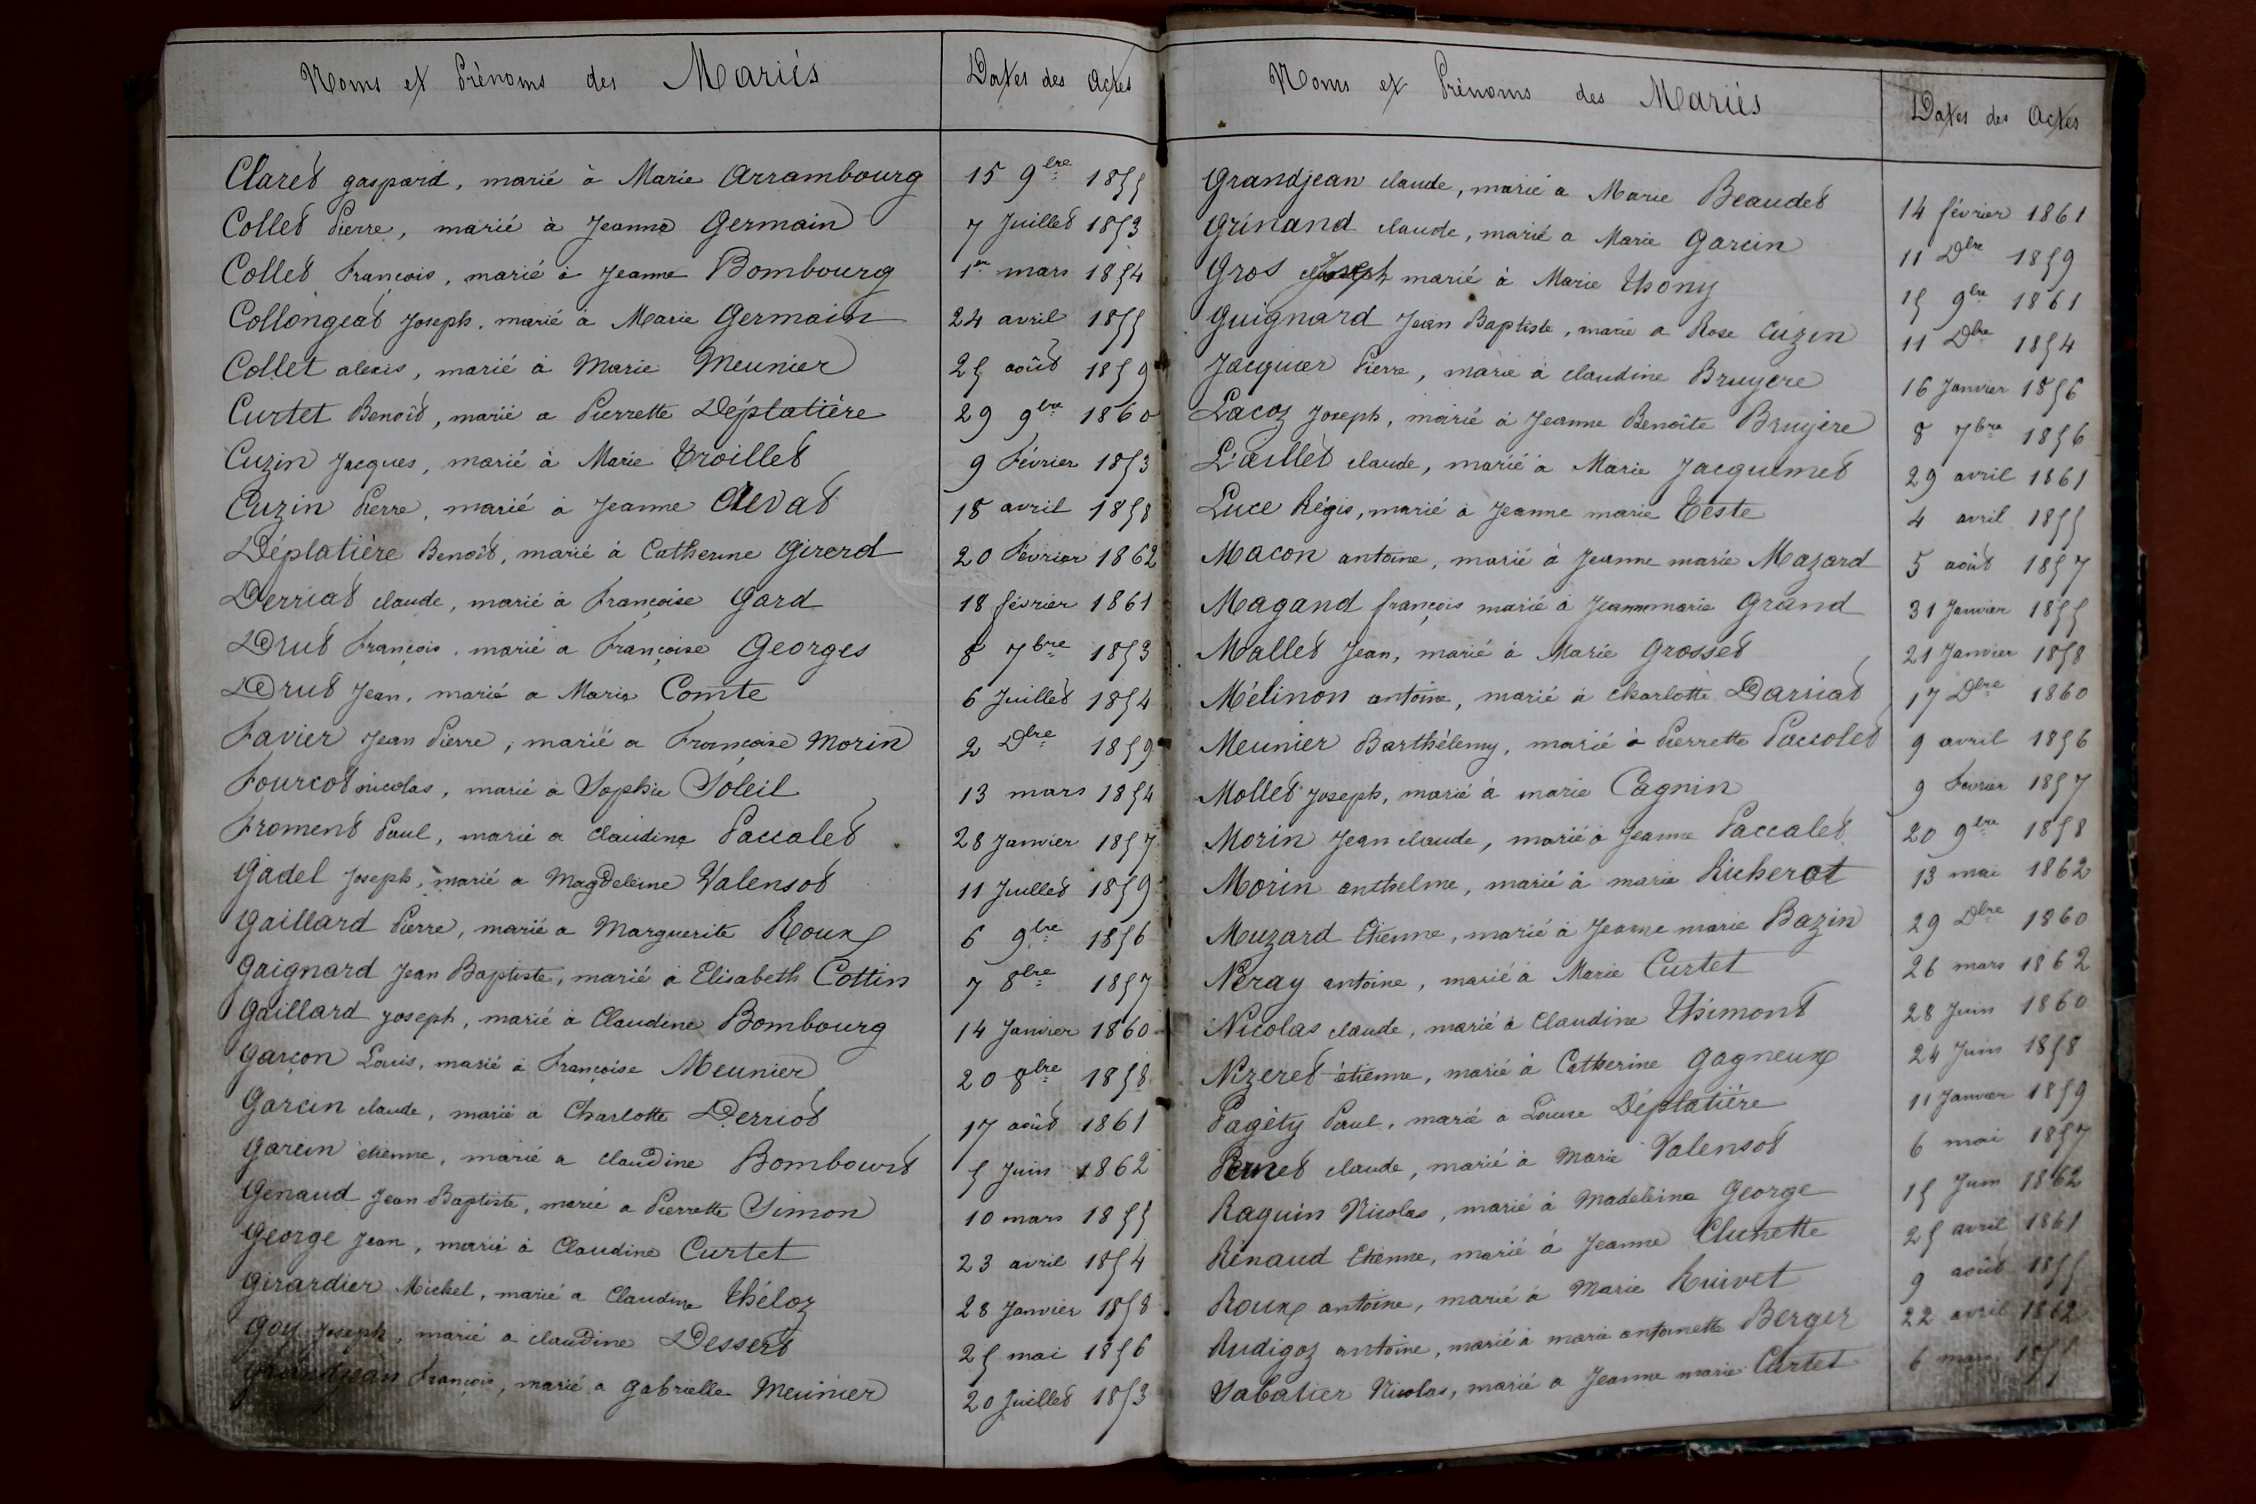 Noms et Prénoms des Mariés
Dates des Actes
Claret gaspard, marié à Marie Arrambourg 15 9bre 1855
Collet Pierre, marié à Jeanne Germain 7 Juillet 1853
Collet François, marié à Jeanne Bombourg 1er mars 1854
Collongeat Joseph, marié à Marie Germain 24 avril 1855
Collet alexis, marié à Marie Meunier 25 août 1859
Curtet Benoît, marié a Pierrette Déplatière 29 9bre 1860
Cuzin Jacques, marié à Marie Troillet 9 Février 1853
Cuzin Pierre, marié à Jeanne 18 avril 1858
Déplatière Benoît, marié à Catherine Girerd 20 Fevrier 1862
Derriat claude, marié à Françoise Gard 18 février 1861
Drut François, marié a Françoise Georges 8 7bre 1853
Drut Jean, marié a Marie Comte 6 Juillet 1854
Favier Jean Pierre, marié a Françoise Morin 2 Dbre 1859
Fourcot nicolas, marié a Sophie Soleil 13 mars 1854
Froment Paul, marié a Claudine Paccalet 28 Janvier 1857
Gadel Joseph, marié a Magdeleine Valensot 11 Juillet 1859
Gaillard Pierre, marié a Marguerite Roux 6 9bre 1856
Gaignard Jean Baptiste, marié à Elisabeth Cottin 7 8bre 1857
Gaillard Joseph, marié à Claudine Bombourg 14 Janvier 1860
Garçon Louis, marié à Françoise Meunier 20 8bre 1858
Garcin claude, marié a Charlotte Derriot 17 août 1861
Garcin etienne, marié a claudine 5 Juin 1862
Genaud Jean Baptiste, marié a Pierrette Simon 10 mars 1855
George Jean, marié à Claudine Curtet 23 avril 1854
Girardier Michel, marié a Claudine Théloz 28 Janvier 1858
Goy Joseph, marié a claudine Dessert 25 mai 1856
Grandjean François, marié a gabrielle Meunier 20 Juillet 1853
Noms et Prénoms des Mariés
Dates des Actes
Grandjean claude, marié a Marie Beaudet 14 février 1861
Grinand claude, marié a Marie Garcin 11 Dbre 1859
Gros Joseph marié à Marie Thony 15 9bre 1861
Guignard Jean Baptiste, marié a Rose Cuzin 11 Dbre 1854
Jacquier Pierre, marié à claudine Bruyere 16 Janvier 1856
Lacoz Joseph, marié à Jeanne Benoîte Bruyère 8 7bre 1856
L'aillet claude, marié à Marie Jacquemet 29 avril 1861
Luce Régis, marié à Jeanne marie Teste 4 avril 1855
Macon antoine, marié à Jeanne marie Mazard 5 août 1857
Magand françois marié à Jeannemarie Grand 31 Janvier 1855
Mallet Jean, marié à Marie Grosset 21 Janvier 1858
Mélinon antoine, marié à charlotte Darriat 17 Dbre 1860
Meunier Barthélemy, marié à Pierrette Paccolet 9 avril 1856
Mollet Joseph, marié à marie Cagnin 9 Fevrier 1857
Morin Jean claude, marié à Jeanne Paccalet 20 9bre 1858
Morin anthelme, marié à marie Richerot 13 mai 1862
Muzard Etienne, marié à Jeanne marie Bazin 29 Dbre 1860
Neray antoine, marié à Marie Curtet 26 mars 1862
Nicolas claude, marié à Claudine Thimont 28 Juin 1860
Nizeret étienne, marié à Catherine Gagneux 24 Juin 1858
Pagèty Paul, marié a Louise Déplatière 11 Janvier 1859
Pernet claude, marié à Marie Valensot 6 mai 1857
Raquin Nicolas, marié à Madeleine George 15 Juin 1862
Rénaud Etienne, marié à Jeanne Clunette 25 avril 1861
Roux antoine, marié à Marie Ruivet 9 août 1855
Rudigoz antoine, marié à marie antoinette Berger 22 avril 1862
Sabatier Nicolas, marié a Jeanne marie Curtet 6 mars